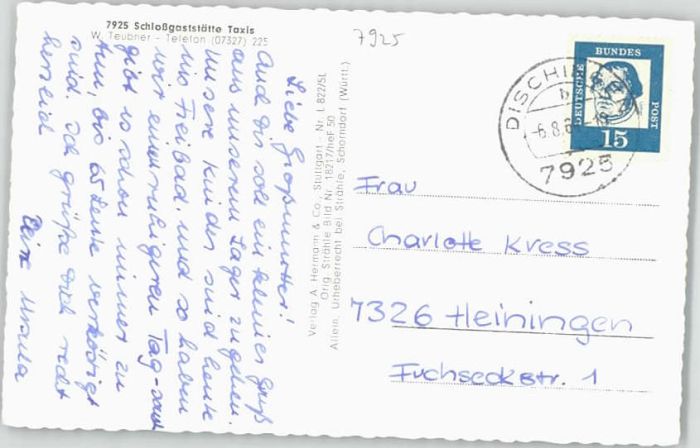 7925 Schloßgaststätte Taxis
W. Teubner - Telefon (07327) 225
7925
Liebe Großmutter!
Auch Dir soll ein kleiner Gruß
aus unserem Lager zugehen.
Unsere Kinder sind heute
im Freibad, und so haben
wir einen ruhigeren Tag-sonst
gibt es schon immer zu
tun, bis 65 Leute verköstigt
sind. Ich grüße Dich recht
herzlich
Deine Ursula
Verlag A. Hermann & Co., Stuttgart - Nr. L 822/St.
Orig. Strähle Bild Nr. 18217/heF 50
Allein. Urheberrecht bei Strähle, Schorndorf (Württ.)
DEUTSCHE BUNDES POST
15
-6.8.6
7925
Frau
Charlotte Kress
7326 Heiningen
Fuchseckstr. 1